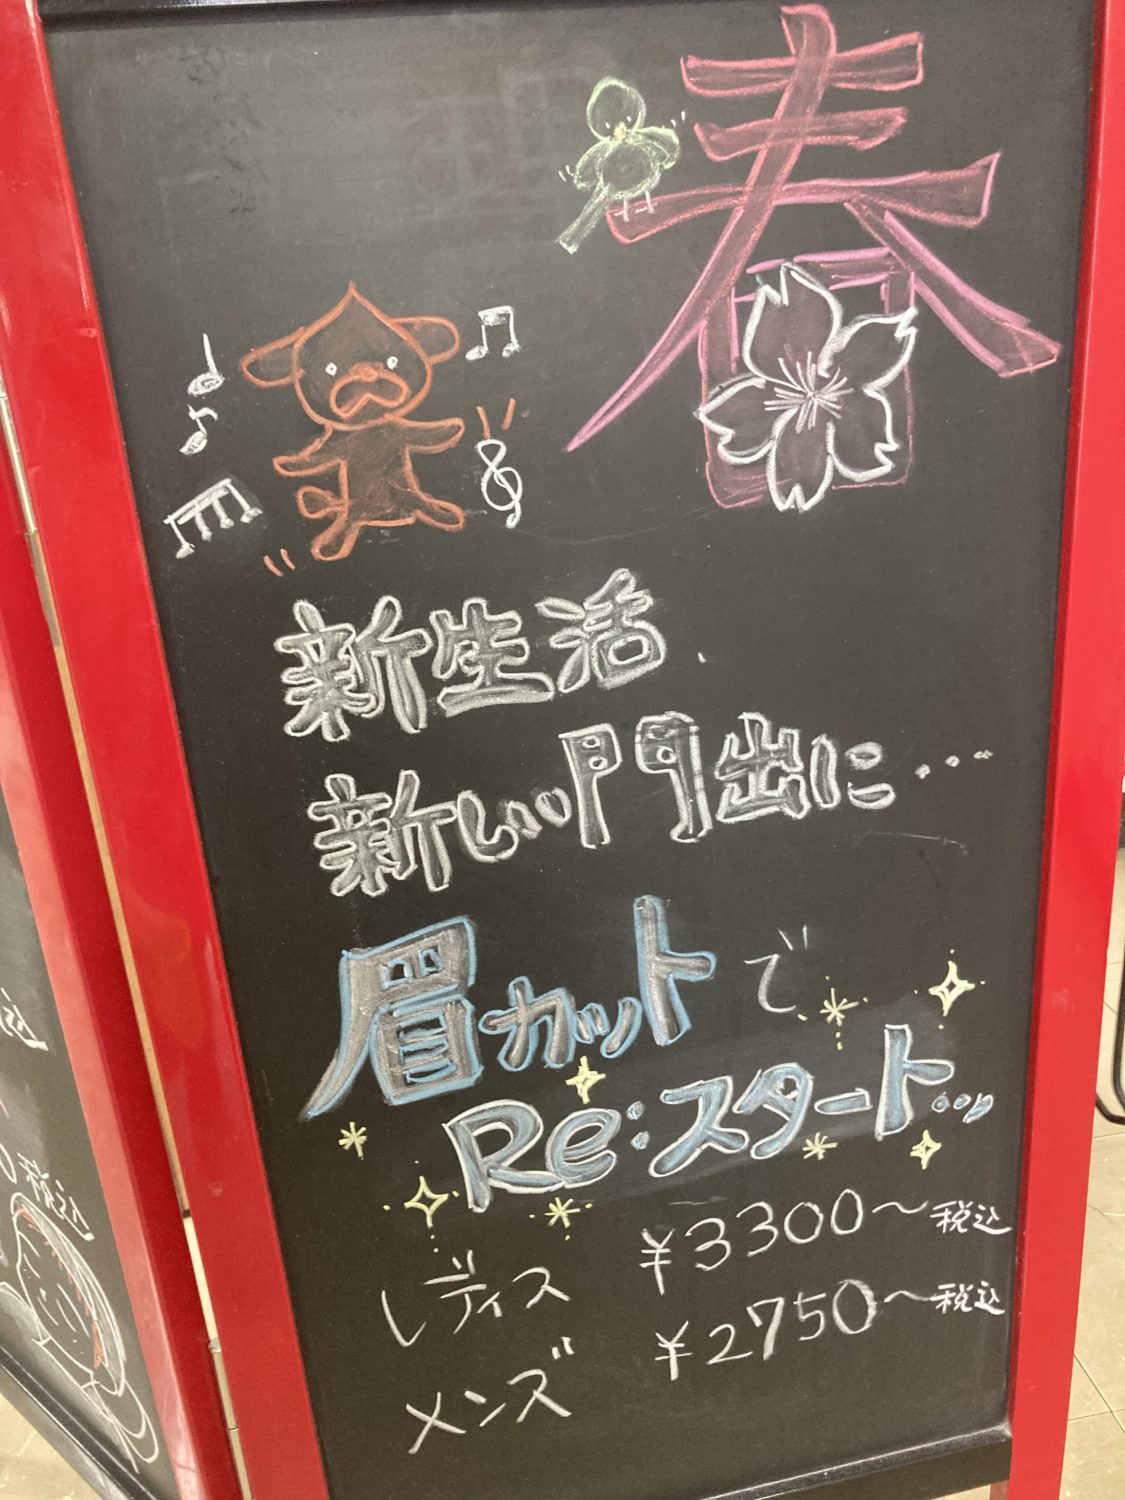 春
新生活
新しい門出に…
眉カットで
Re:スタート…
レディス ¥3300〜税込
メンズ ¥2750〜税込
税込